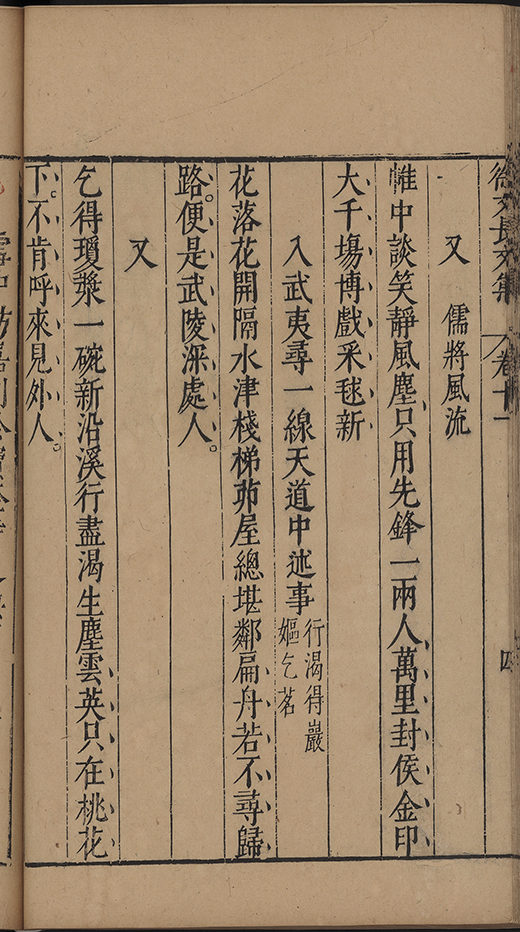 徐文長文集 卷十一 四
又 儒將風流
帷中談笑靜風塵只用先鋒一兩人萬里封侯金印
大千塲博戲采毬新
入武夷尋一線天道中述事行渴得巖嫗乞茗
花落花開隔水津棧梯茆屋總堪鄰扁舟若不尋歸
路便是武陵深處人。
又
乞得瓊漿一碗新沿溪行盡渴生塵雲英只在桃花
下不肯呼來見外人。